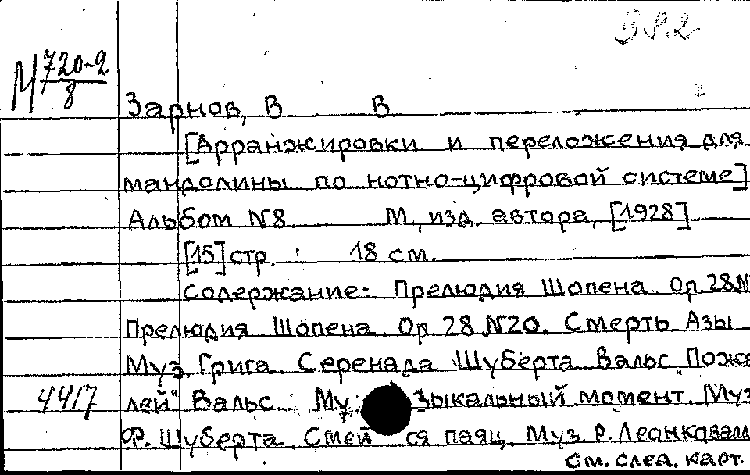 М 720-2
8
Зарнов, В В
[Арранжировки и переложения для
мандолины по нотно-цифровой системе]
Альбом №8. М, изд. автора, [1928]
[15] стр. : 18 см.
Содержание: Прелюдия Шопена. Ор. 28.N
Прелюдия Шопена. Ор. 28. №20. Смерть Азы
Муз. Грига. Серенада Шуберта. Вальс „Пожа
4417 лей" Вальс. Му зыкальный момент. Муз
Ф. Шуберта. Смей ся паяц. Муз. Р. Леонковалл
См. след. карт.